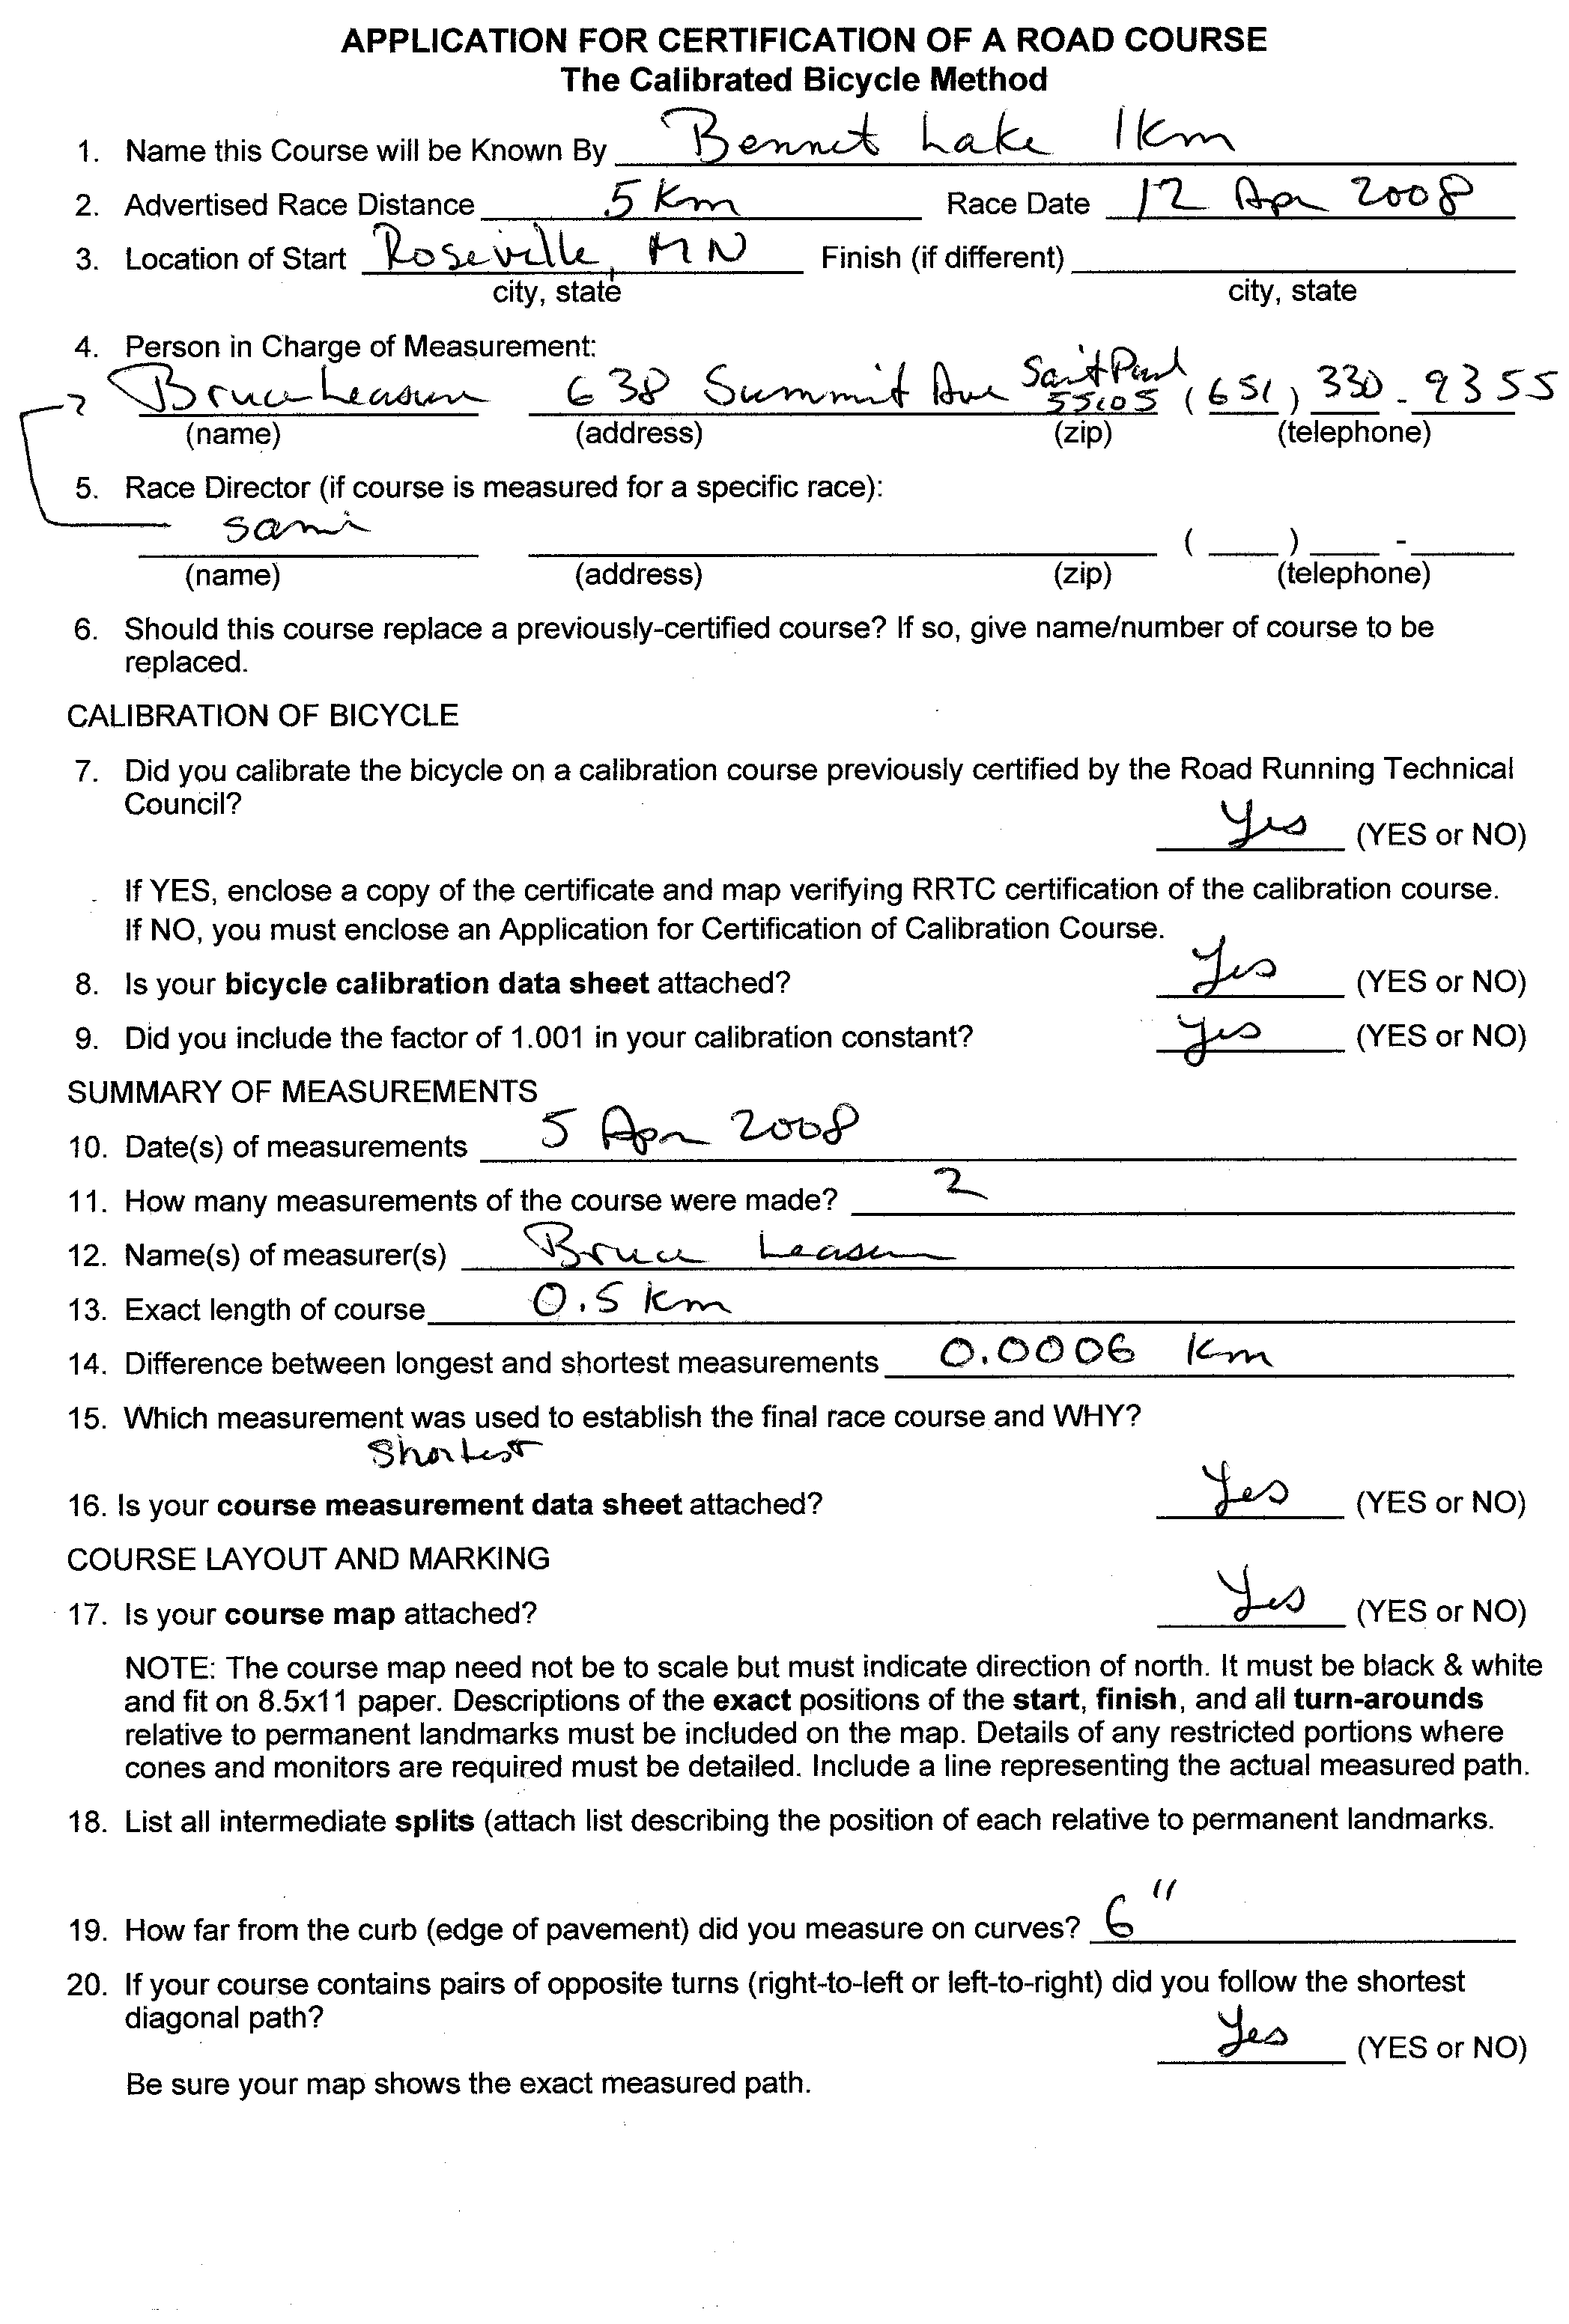 APPLICATION FOR CERTIFICATION OF A ROAD COURSE
The Calibrated Bicycle Method
1. Name this Course will be Known By Bennet Lake 1Km
2. Advertised Race Distance 5 Km Race Date 12 Apr 2008
3. Location of Start Roseville, MN Finish (if different)
city, state city, state
4. Person in Charge of Measurement:
Bruce Leasure 638 Summit Ave Saint Paul 55105 (651) 330-9355
(name) (address) (zip) (telephone)
5. Race Director (if course is measured for a specific race):
same ( ) -
(name) (address) (zip) (telephone)
6. Should this course replace a previously-certified course? If so, give name/number of course to be
replaced.
CALIBRATION OF BICYCLE
7. Did you calibrate the bicycle on a calibration course previously certified by the Road Running Technical
Council?
Yes (YES or NO)
If YES, enclose a copy of the certificate and map verifying RRTC certification of the calibration course.
If NO, you must enclose an Application for Certification of Calibration Course.
8. Is your bicycle calibration data sheet attached? Yes (YES or NO)
9. Did you include the factor of 1.001 in your calibration constant? yes (YES or NO)
SUMMARY OF MEASUREMENTS
10. Date(s) of measurements 5 Apr 2008
11. How many measurements of the course were made? 2
12. Name(s) of measurer(s) Bruce Leasure
13. Exact length of course 0.5 Km
14. Difference between longest and shortest measurements 0.0006 Km
15. Which measurement was used to establish the final race course and WHY?
Shortest
16. Is your course measurement data sheet attached? Yes (YES or NO)
COURSE LAYOUT AND MARKING
17. Is your course map attached? Yes (YES or NO)
NOTE: The course map need not be to scale but must indicate direction of north. It must be black & white
and fit on 8.5x11 paper. Descriptions of the exact positions of the start, finish, and all turn-arounds
relative to permanent landmarks must be included on the map. Details of any restricted portions where
cones and monitors are required must be detailed. Include a line representing the actual measured path.
18. List all intermediate splits (attach list describing the position of each relative to permanent landmarks.
19. How far from the curb (edge of pavement) did you measure on curves? 6"
20. If your course contains pairs of opposite turns (right-to-left or left-to-right) did you follow the shortest
diagonal path?
Yes (YES or NO)
Be sure your map shows the exact measured path.